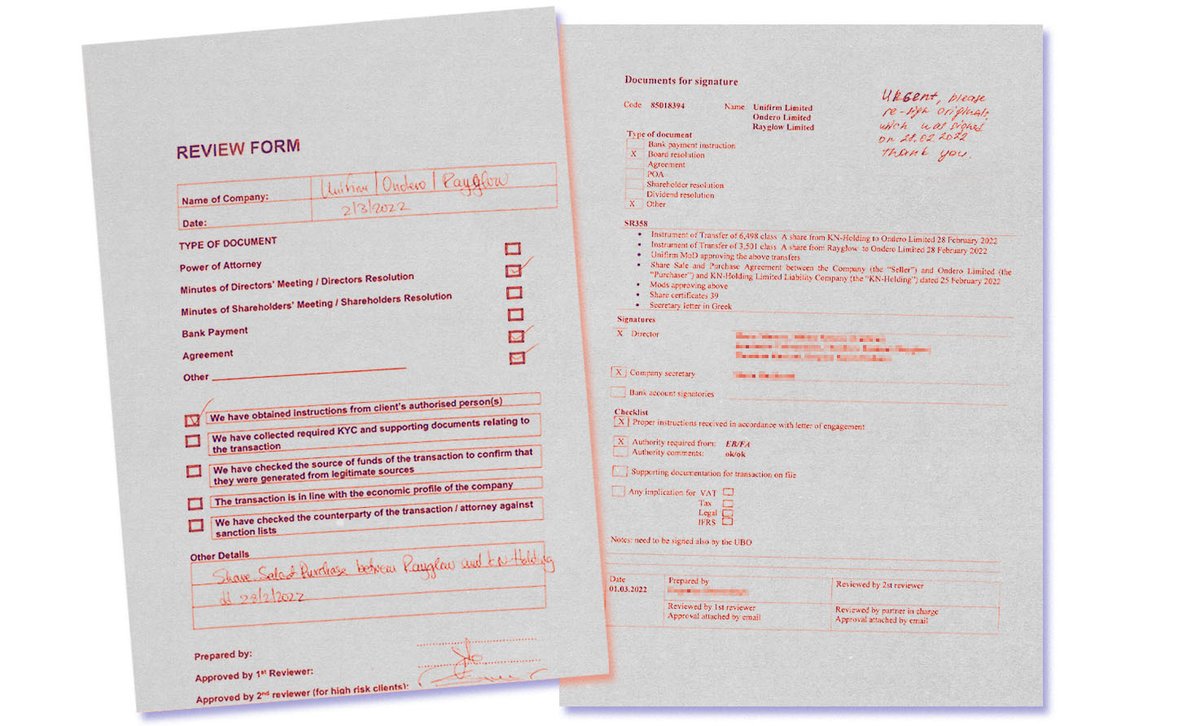 REVIEW FORM
Name of Company: Unifirm / Ondero / Rayglow
Date: 2/3/2022
TYPE OF DOCUMENT
Power of Attorney
Minutes of Directors' Meeting / Directors Resolution
Minutes of Shareholders' Meeting / Shareholders Resolution
Bank Payment
Agreement
Other
We have obtained instructions from client's authorised person(s)
We have collected required KYC and supporting documents relating to
the transaction
We have checked the source of funds of the transaction to confirm that
they were generated from legitimate sources
The transaction is in line with the economic profile of the company
We have checked the counterparty of the transaction / attorney against
sanction lists
Other Details
Share Sale & Purchase between Rayglow and KN-Holding
dd 28/2/2022
Prepared by:
Approved by 1st Reviewer:
Approved by 2nd reviewer (for high risk clients):
Documents for signature
Code 85018394 Name Unifirm Limited
Ondero Limited
Rayglow Limited
URGENT, please
re-sign originals,
which was signed
on 28.02.2022
thank you.
Type of document
Bank payment instruction
X Board resolution
Agreement
POA
Shareholder resolution
Dividend resolution
X Other
SR358
• Instrument of Transfer of 6,498 class A share from KN-Holding to Ondero Limited 28 February 2022
• Instrument of Transfer of 3,501 class A share from Rayglow to Ondero Limited 28 February 2022
• Unifirm MoD approving the above transfers
• Share Sale and Purchase Agreement between the Company (the "Seller") and Ondero Limited (the
"Purchaser") and KN-Holding Limited Liability Company (the "KN-Holding") dated 25 February 2022
• Mods approving above
• Share certificates 39
• Secretary letter in Greek
Signatures
X Director
X Company secretary
Bank account signatories
Checklist
X Proper instructions received in accordance with letter of engagement
X Authority required from: EB/FA
Authority comments: ok/ok
Supporting documentation for transaction on file
Any implication for VAT
Tax
Legal
IFRS
Notes: need to be signed also by the UBO
Date
01.03.2022
Prepared by
Reviewed by 2nd reviewer
Reviewed by 1st reviewer
Approval attached by email
Reviewed by partner in charge
Approval attached by email